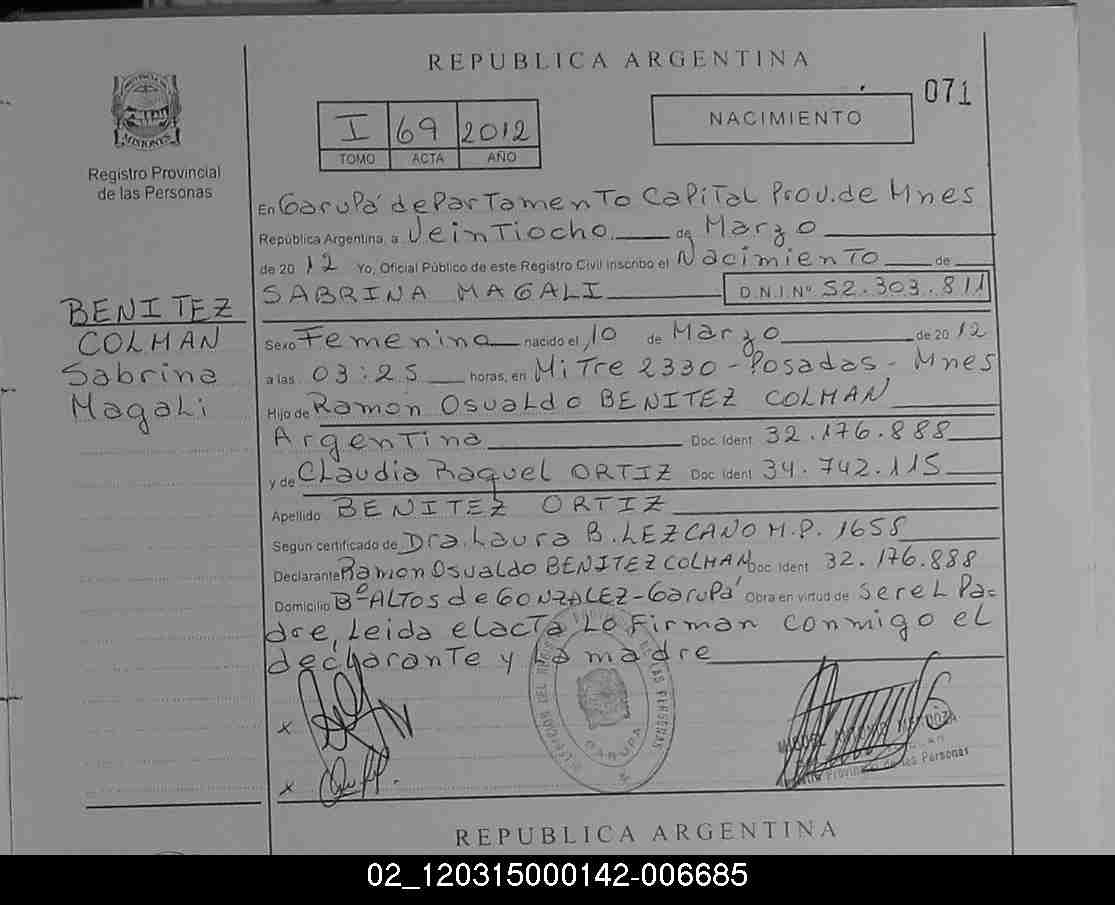 REPUBLICA ARGENTINA
071
PROVINCIA DE
MISIONES
Registro Provincial
de las Personas
I 69 2012
TOMO ACTA AÑO
NACIMIENTO
En Garupá departamento Capital Prov. de Mnes
República Argentina, a Veintiocho de Marzo
de 2012 Yo, Oficial Público de este Registro Civil inscribo el Nacimiento de
SABRINA MAGALI D.N.I.Nº 52.303.811
BENITEZ
COLMAN
Sabrina
Magali
Sexo Femenina nacido el 10 de Marzo de 2012
a las 03:25 horas, en Mitre 2330 - Posadas - Mnes
Hijo de Ramon Osvaldo BENITEZ COLMAN
Argentina Doc. Ident 32.176.888
y de Claudia Raquel ORTIZ Doc. Ident 34.742.115
Apellido BENITEZ ORTIZ
Segun certificado de Dra. Laura B. LEZCANO M.P. 1658
Declarante Ramon Osvaldo BENITEZ COLMAN Doc. Ident 32.176.888
Domicilio Bº ALTOS de GONZALEZ - Garupá Obra en virtud de ser el Pa-
dre, Leida el acta Lo firman conmigo el
declarante y La madre
DE LAS PERSONAS
GARUPA
x
x
MENDOZA
Provincial de las Personas
REPUBLICA ARGENTINA
02_120315000142-006685